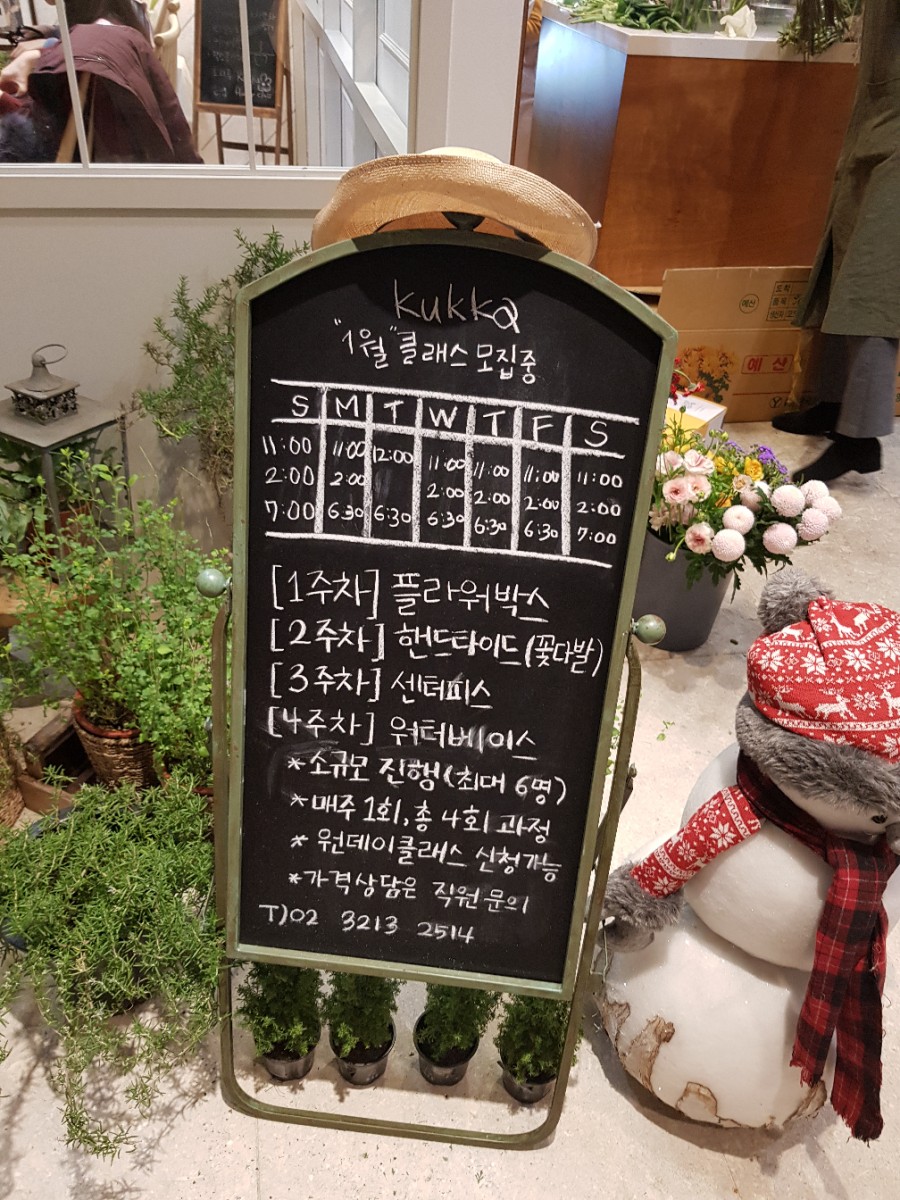 kukka
"1월" 클래스 모집중
S M T W T F S
11:00 11:00 12:00 11:00 11:00 11:00 11:00
2:00 2:00 2:00 2:00 2:00 2:00
7:00 6:30 6:30 6:30 6:30 6:30 7:00
[1주차] 플라워박스
[2주차] 핸드타이드(꽃다발)
[3주차] 센터피스
[4주차] 워터베이스
*소규모 진행(최대 6명)
*매주 1회, 총 4회 과정
*원데이클래스 신청가능
*가격상담은 직원문의
T)02 3213 2514
예산
도착
품목
예산